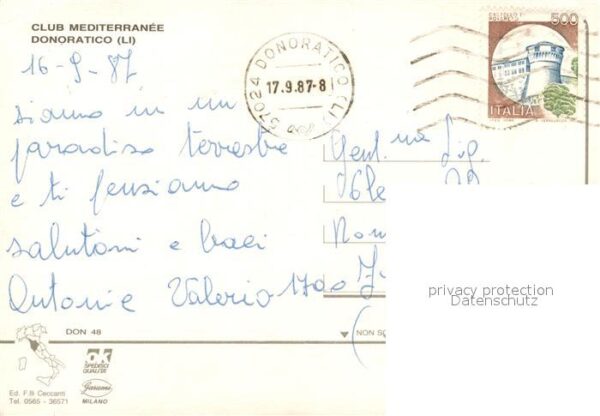 CLUB MEDITERRANÉE
DONORATICO (LI)
16-9-87
siamo in un
paradiso terrestre
e ti pensiamo
salutoni e baci
Antonio Valerio
57024 DONORATICO (LI)
17.9.87-8
500
ITALIA
Gent.ma Sig.
privacy protection
Datenschutz
DON 48
NON SC
OK
SPEDISCI
QUALITÀ
Garami
MILANO
Ed. F.lli Ceccanti
Tel. 0565 - 36571